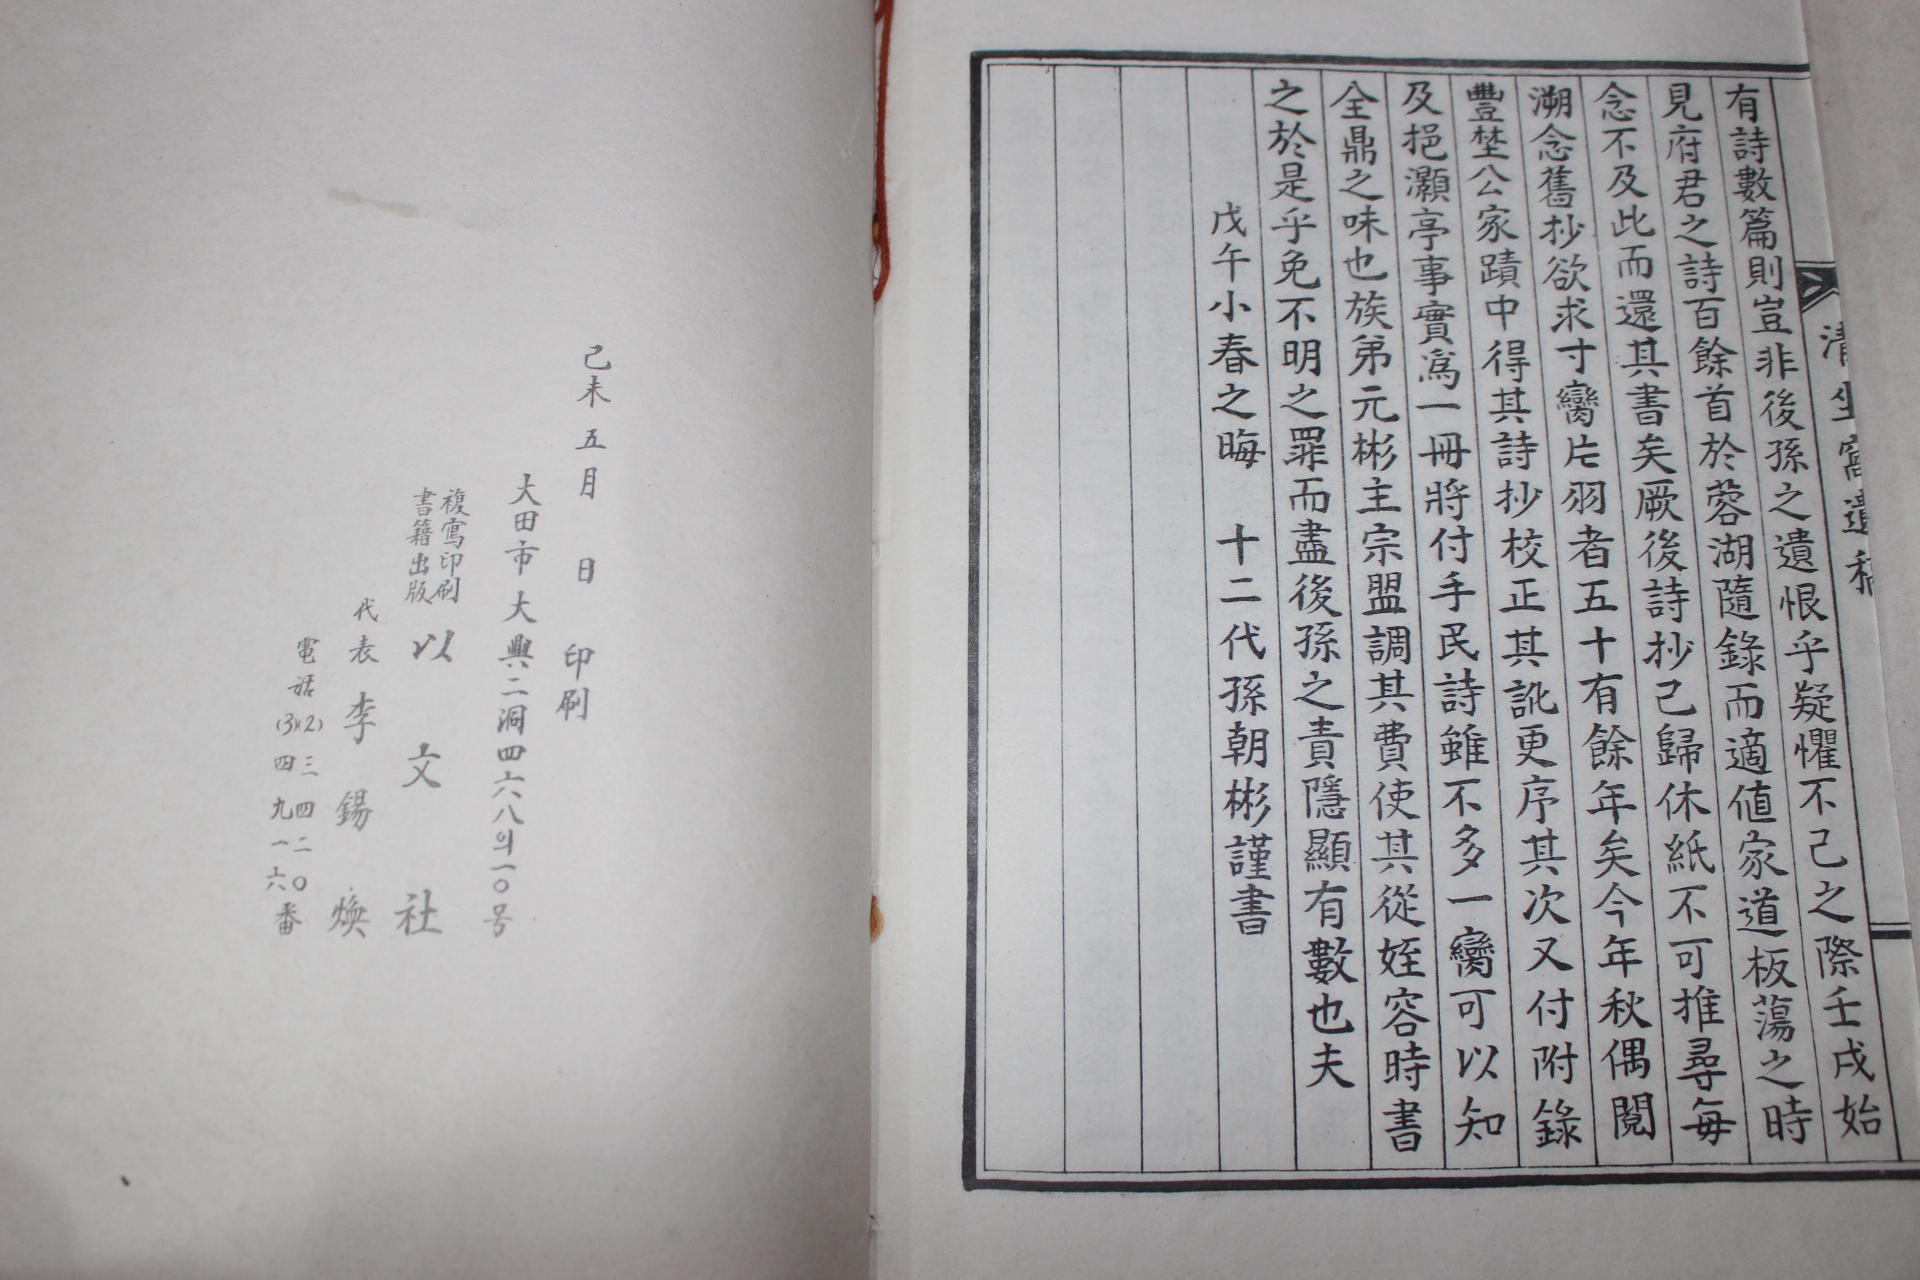 有詩數篇則豈非後孫之遺恨乎疑懼不己之際壬戌始
見府君之詩百餘首於蓉湖隨錄而適値家道板蕩之時
念不及此而還其書矣厥後詩抄己歸休紙不可推尋每
溯念舊抄欲求寸臠片羽者五十有餘年矣今年秋偶閱
豐埜公家蹟中得其詩抄校正其訛更序其次又付附錄
及挹灝亭事實爲一冊將付手民詩雖不多一臠可以知
全鼎之味也族弟元彬主宗盟調其費使其從姪容時書
之於是乎免不明之罪而盡後孫之責隱顯有數也夫
戊午小春之晦 十二代孫朝彬謹書
己未五月 日 印刷
大田市大興二洞四六八의一〇号
複寫印刷
書籍出版
以文社
代表 李錫煥
電話
(2)三四二〇
(3)四九一六
番